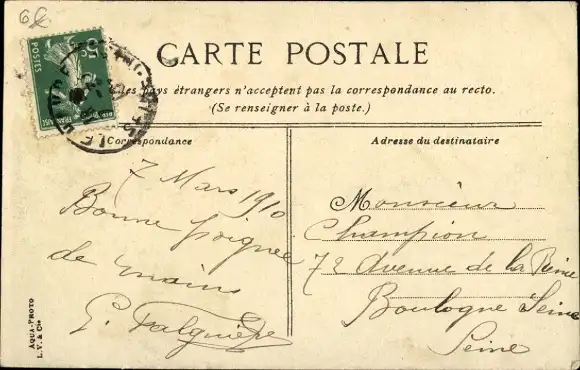 6€
5c
POSTES
FRANÇAISE
CARTE POSTALE
les pays étrangers n'acceptent pas la correspondance au recto.
(Se renseigner à la poste.)
Correspondance
Adresse du destinataire
7 Mars 1910
Bonne poignée
de mains
G. Falguière
Monsieur
Champion
72 Avenue de la Reine
Boulogne Seine
Seine
AQUA-PHOTO
L. V. & Cie